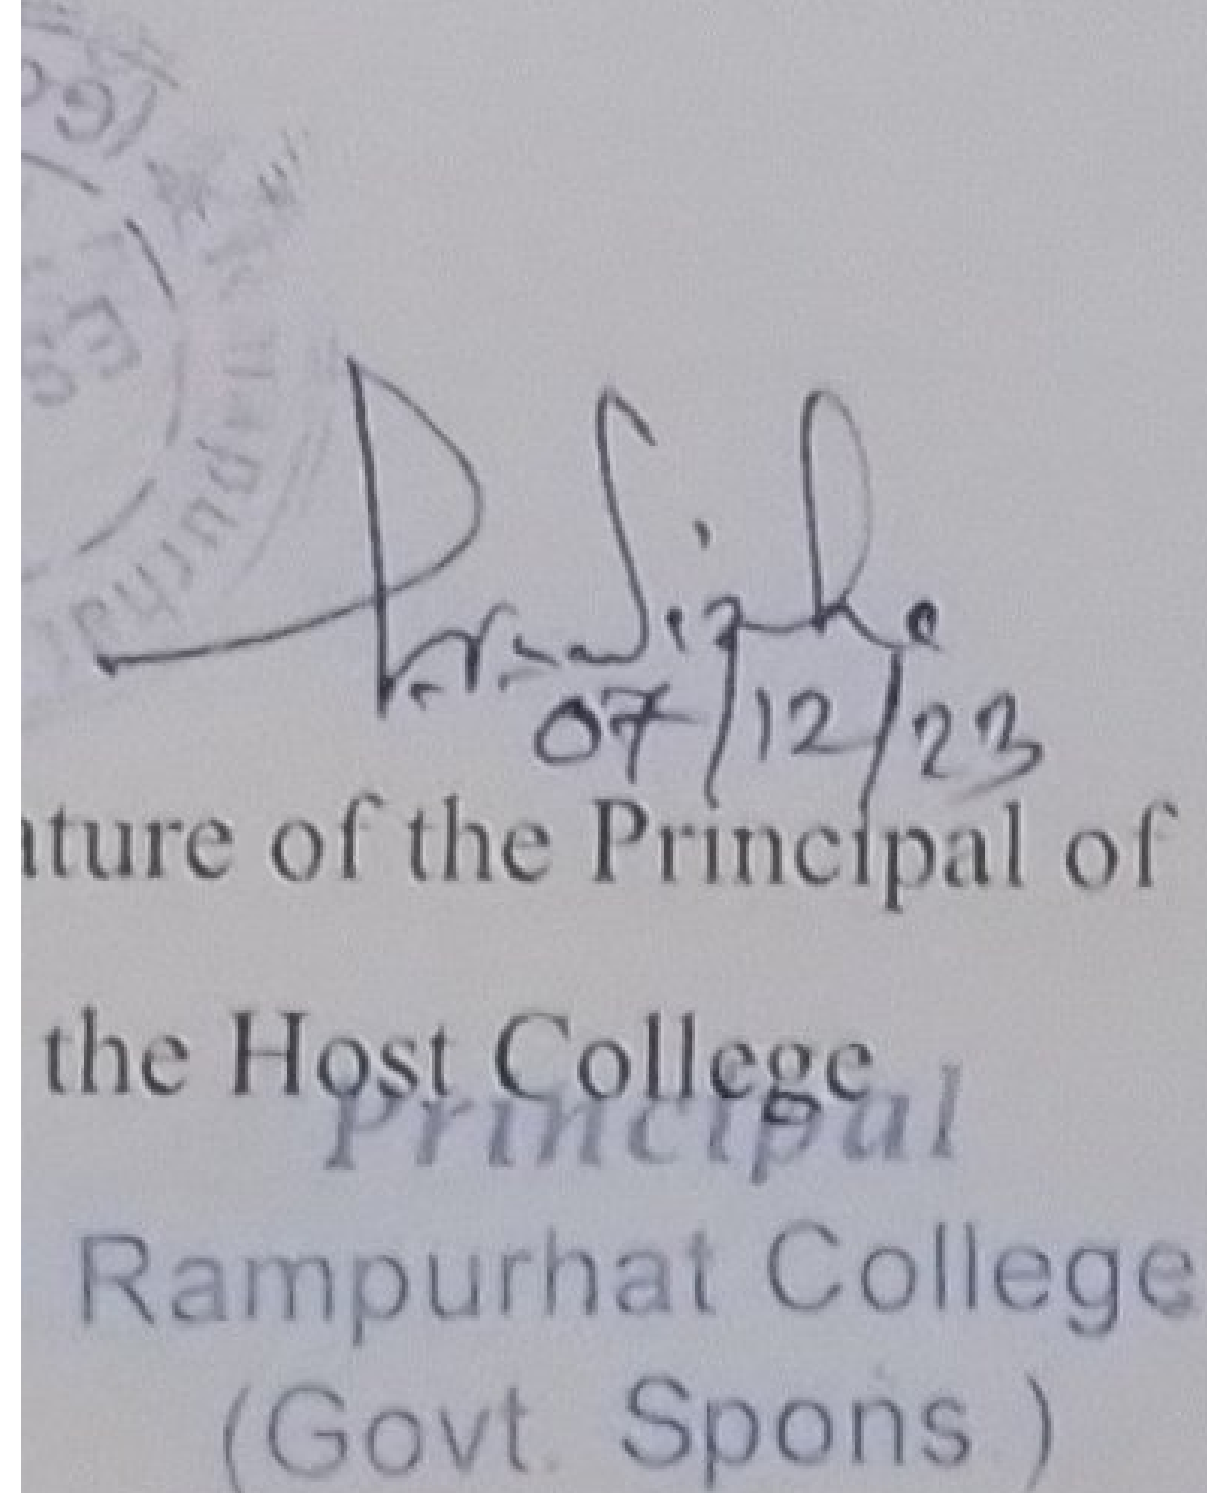 07/12/23
ature of the Principal of
the Host College
Principal
Rampurhat College
(Govt. Spons.)